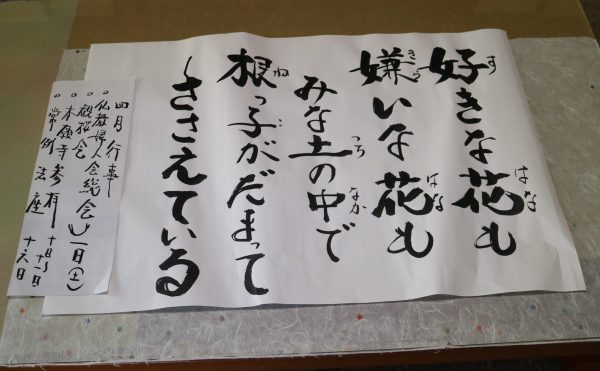 す はな
好きな花も
きら はな
嫌いな花も
つち なか
みな土の中で
ね こ
根っ子がだまって
ささえている
四月行事
○仏教婦人会総会 一日(土)
○観桜会
○本願寺参拝 十日〜十一日
○常例法座 十六日